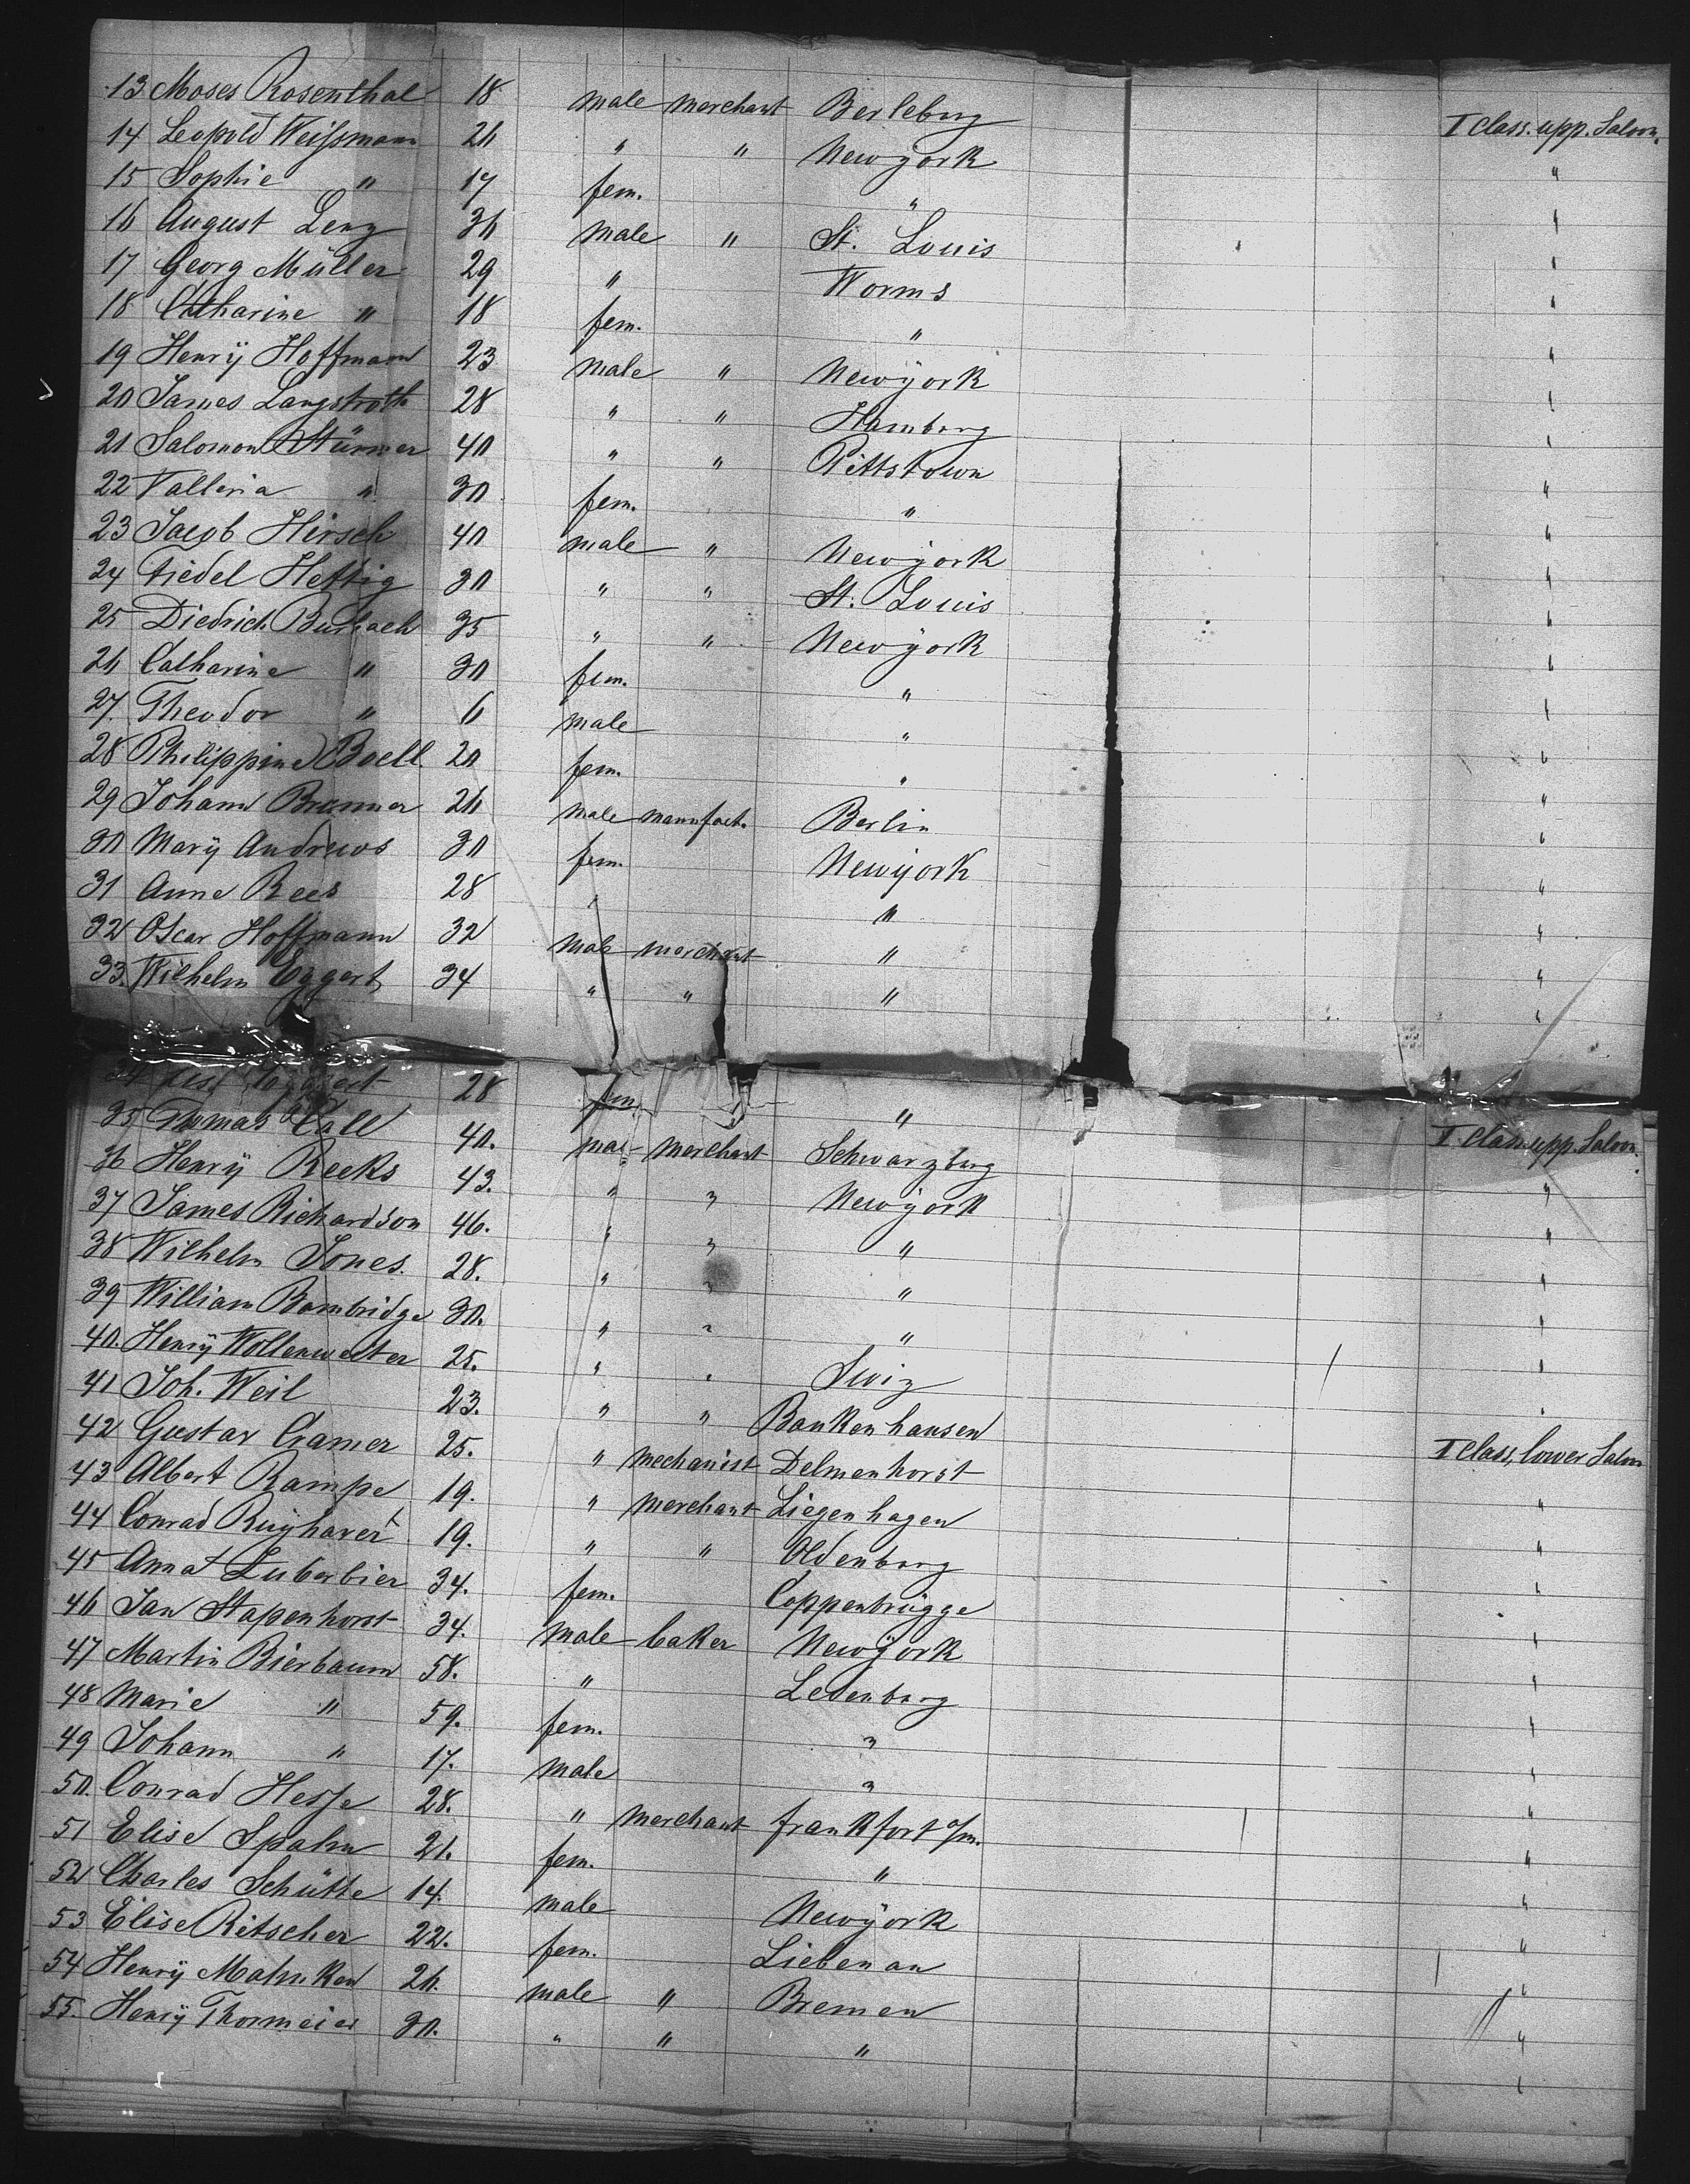 13 Moses Rosenthal 18 male merchant Berleburg I Class. upp. Saloon.
14 Leopold Weißmann 26 " " Newÿork "
15 Sophie " 17 fem. " "
16 August Lenz 36 male " St. Louis "
17 Georg Müller 29 " Worms "
18 Catharine " 18 fem. " "
19 Henrÿ Hoffmann 23 male " Newÿork "
20 James Langstroth 28 " " Hamburg "
21 Salomon Stürmer 40 " " Pittstown "
22 Valleria " 30 fem. " "
23 Jacob Hirsch 40 male " Newÿork "
24 Fidel Hettig 30 " " St. Louis "
25 Diedrich Burbach 35 " " Newÿork "
26 Catharine " 30 fem. " "
27. Theodor " 6 male " "
28 Philippine Boell 20 fem. " "
29 Johann Brunner 26 male manufact. Berlin "
30 Marÿ Andrews 30 fem. Newÿork "
31 Anne Rees 28 " " "
32 Oscar Hoffmann 32 male merchant " "
33. Wilhelm Eggert 34 " " " "
34 Eggert 28 fem. "
35 Thomas Call 40. male merchant Schwarzburg I Class upp. Saloon.
36 Henrÿ Reeks 43. " " Newÿork "
37 James Richardson 46. " " " "
38 Wilhelm Jones. 28. " " " "
39 William Bambridge 30. " " " "
40. Henrÿ Wollenweber 25. " " Swiz "
41 Joh. Weil 23. " " Bankenhausen "
42 Gustav Cramer 25. " mechanist Delmenhorst I Class, lower Saloon
43 Albert Rampe 19. " merchant Liegenhagen "
44 Conrad Ruÿhaver 19. " " Oldenburg "
45 Anna Luberbier 34. fem. Coppenbrügge "
46 Jan Stapenhorst 34. male baker Newÿork "
47 Martin Bierbaum 58. " Ledenburg "
48 Marie " 59. fem. " "
49 Johann " 17. male " "
50. Conrad Hesse 28. " merchant Frankfort a/m. "
51 Elise Spahn 21. fem. " "
52 Charles Schütte 14. male Newÿork "
53 Elise Ritscher 22. fem. Liebenau "
54 Henrÿ Mahnken 26. male " Bremen "
55. Henrÿ Thormeier 30. " " " "